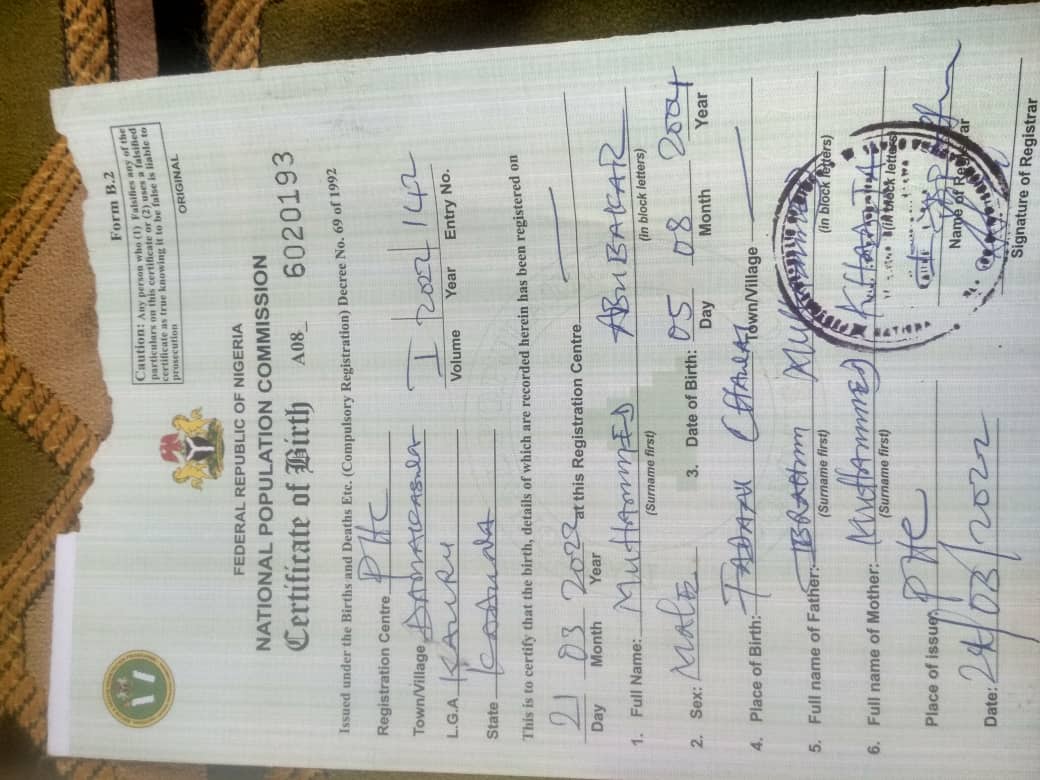 Form B.2
Caution: Any person who (1) Falsifies any of the
particulars on this certificate or (2) uses a falsified
certificate as true knowing it to be false is liable to
prosecution
ORIGINAL
FEDERAL REPUBLIC OF NIGERIA
NATIONAL POPULATION COMMISSION
Certificate of Birth A08_ 6020193
Issued under the Births and Deaths Etc. (Compulsory Registration) Decree No. 69 of 1992
Registration Centre PHC
Town/Village I 142
L.G.A KAURU Volume Year Entry No.
State KADUNA
This is to certify that the birth, details of which are recorded herein has been registered on
21 03 at this Registration Centre
Day Month Year
1. Full Name: MUHAMMED ABUBAKAR
(Surname first) (In block letters)
2. Sex: MALE 3. Date of Birth: 05 08 2004
Day Month Year
4. Place of Birth: Town/Village
5. Full name of Father: IBRAHIM
(Surname first) (In block letters)
6. Full name of Mother: MUHAMMED
(Surname first) (In block letters)
Place of issue: PHC
Name of Registrar
Date: 
Signature of Registrar